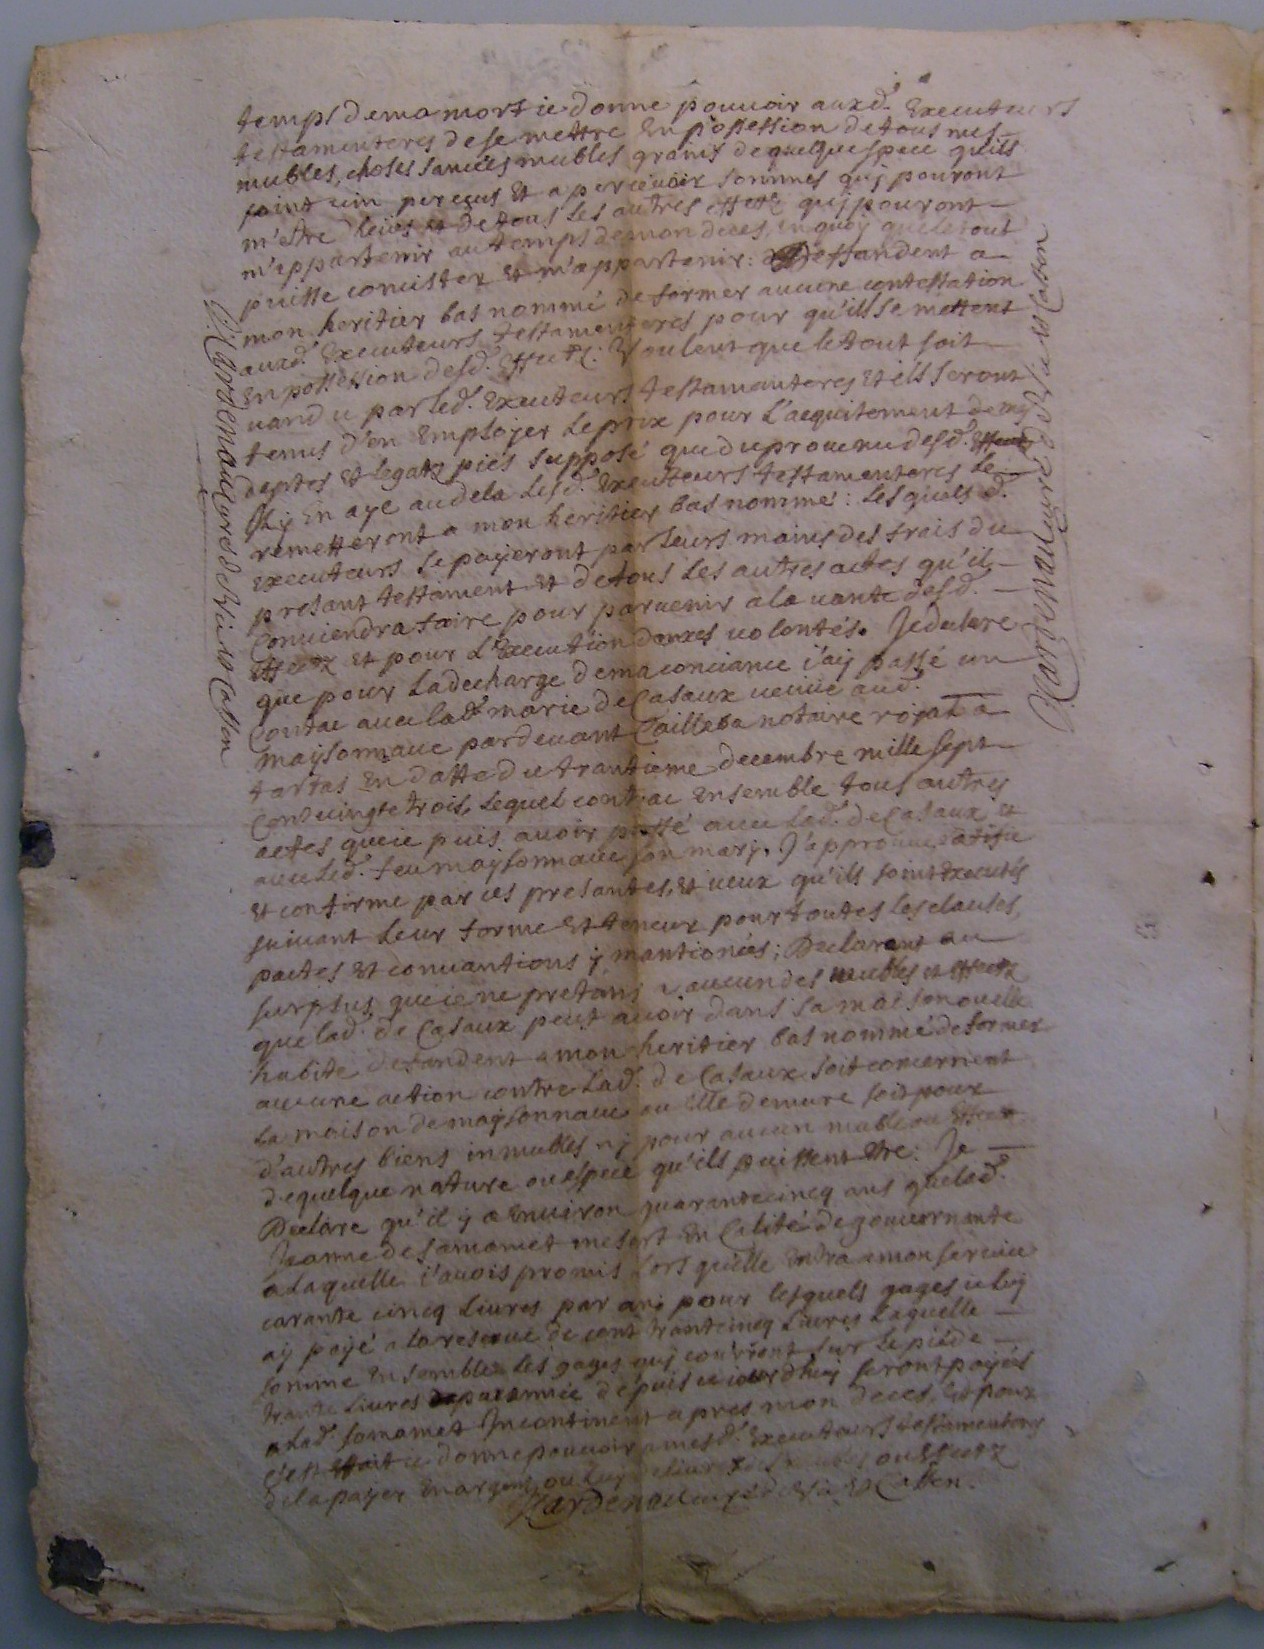 temps de ma mort ie donne pouvoir auxd. Executeurs
testamenteres de se mettre En possession de tous mes
mubles, choses mubles grains de quelque spece quils
soint perceus Et a percevoir sommes quj pouront
m'estre et de tous les autres effetz quj pouront
m'eppartenir au temps de mon deces, en quoy que le tout
puisse concister Et m'appartenir: deffandent a
mon heritier bas nommé de former aucune contestation
auxd. Executeurs testamenteres pour qu'ils se mettent
En possession desd. Effetz. Voulent que le tout soit
vandu par led. Executeurs testamanteres Et ils seront
tenus d'en Employer le prix pour l'acquitement de mes
deptes Et legatz piés supposé que du provenu desd. Effetz
Il y En aye au dela lesd. Executeurs testamenteres le
remetteront a mon heritier bas nommé: lesquels d.
Executeurs se payeront par leurs mains des frais du
presant testament Et de tous les autres actes qu'il
Conviendra faire pour parvenir a la vante desd.
Effetz Et pour l'Execution de mes volontés. Je declare
que pour la decharge de ma conciance i'aij passé un
Contac avec lad. marie de Casaux veuve aud.
maysonnave pardevant Cailleba notaire royal a
tartas En datte du trantieme decembre mille sept
Cens vingt trois, lequel contrac Ensemble tous autres
actes que ie puis avoir passé avec lad. de Casaux et
avec led. feu maysonnave son marj. J'approuve ratifie
Et confirme par ces presantes, Et veux qu'ils soint Executés
suivant leur forme Et teneur pour toutes les clauses,
pactes Et convantions ÿ mantionées; Declarent au
surplus que ie ne pretans a aucun des mubles et effetz
que lad. de Casaux peut avoir dans sa maison ou elle
habite defandent a mon heritier bas nommé de former
aucune action contre lad. de Casaux soit concernent
la maison de maysonnave ou Elle demure soit pour
d'autres biens inmubles nÿ pour aucun muble ou Effetz
de quelque nature ou espece qu'ils puissent Etre: Je
Declare qu'il ÿ a Environ quarante cinq ans que lad.
Jeanne de Samamet me sert En Calité de gouvernante
a laquelle i'avois promis lors qu'elle Entra a mon service
carante cinq livres par an pour lesquels gages ie luy
aÿ payé a la reserve de cent trante cinq livres laquelle
somme Ensemble les gages quj courront sur le pied de
trante livres par année depuis ce iourdhuy seront payés
a lad. Samamet Incontinent apres mon deces, Et pour
c'est Effait ie donne pouvoir a mesd. Executeurs testamenteres
de la payer En argent ou luy delivrer des mubles ou Effetz
Dardenau curé de Vic et Cassen.
D. Dardenau curé de Vic et Cassen
Dardenau curé de Vic et Cassen